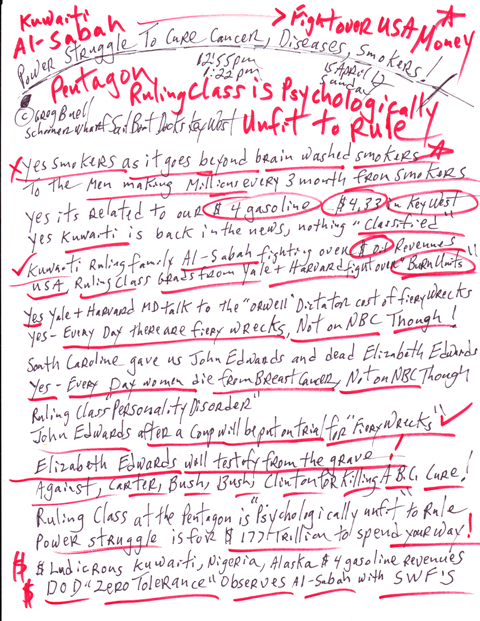 Kuwaiti
Al-Sabah
> Fight over USA Money
Power Struggle To Cure Cancer, Diseases, Smokers!
12:55pm
1:22pm
15 April 12
Sunday
Pentagon
Ruling Class is Psychologically
Unfit to Rule
© Greg Buell
Schooner Wharf Sail Boat Docks Key West
Yes smokers as it goes beyond brain washed smokers
To the Men making Millions every 3 month from smokers
Yes its related to our $4 gasoline $4.33 in Key West
Yes Kuwaiti is back in the news, nothing "Classified"
Kuwaiti Ruling family Al-Sabah fighting over $ Oil Revenues
USA, Ruling Class Grads from Yale + Harvard fight over "Burn Units"
Yes Yale + Harvard MD talk to the "Orwell" Dictator cost of fiery wrecks
Yes - Every Day there are fiery wrecks, Not on NBC Though!
South Caroline gave us John Edwards and dead Elizabeth Edwards
Yes - Every Day women die from Breast Cancer, Not on NBC Though
Ruling Class "Personality Disorder"
John Edwards after a Coup will be put on trial for "Fiery Wrecks"
Elizabeth Edwards will testofy from the grave!
Against, Carter, Bush, Bush, Clinton for Killing A B.C. Cure!
Ruling Class at the Pentagon is "Psychologically unfit" to Rule
Power struggle is for $177 Trillion to spend your way!
$ Ludicrous Kuwaiti, Nigeria, Alaska $4 gasoline revenues
$ DOD "Zero Tolerance" Observes Al-Sabah with SWF'S